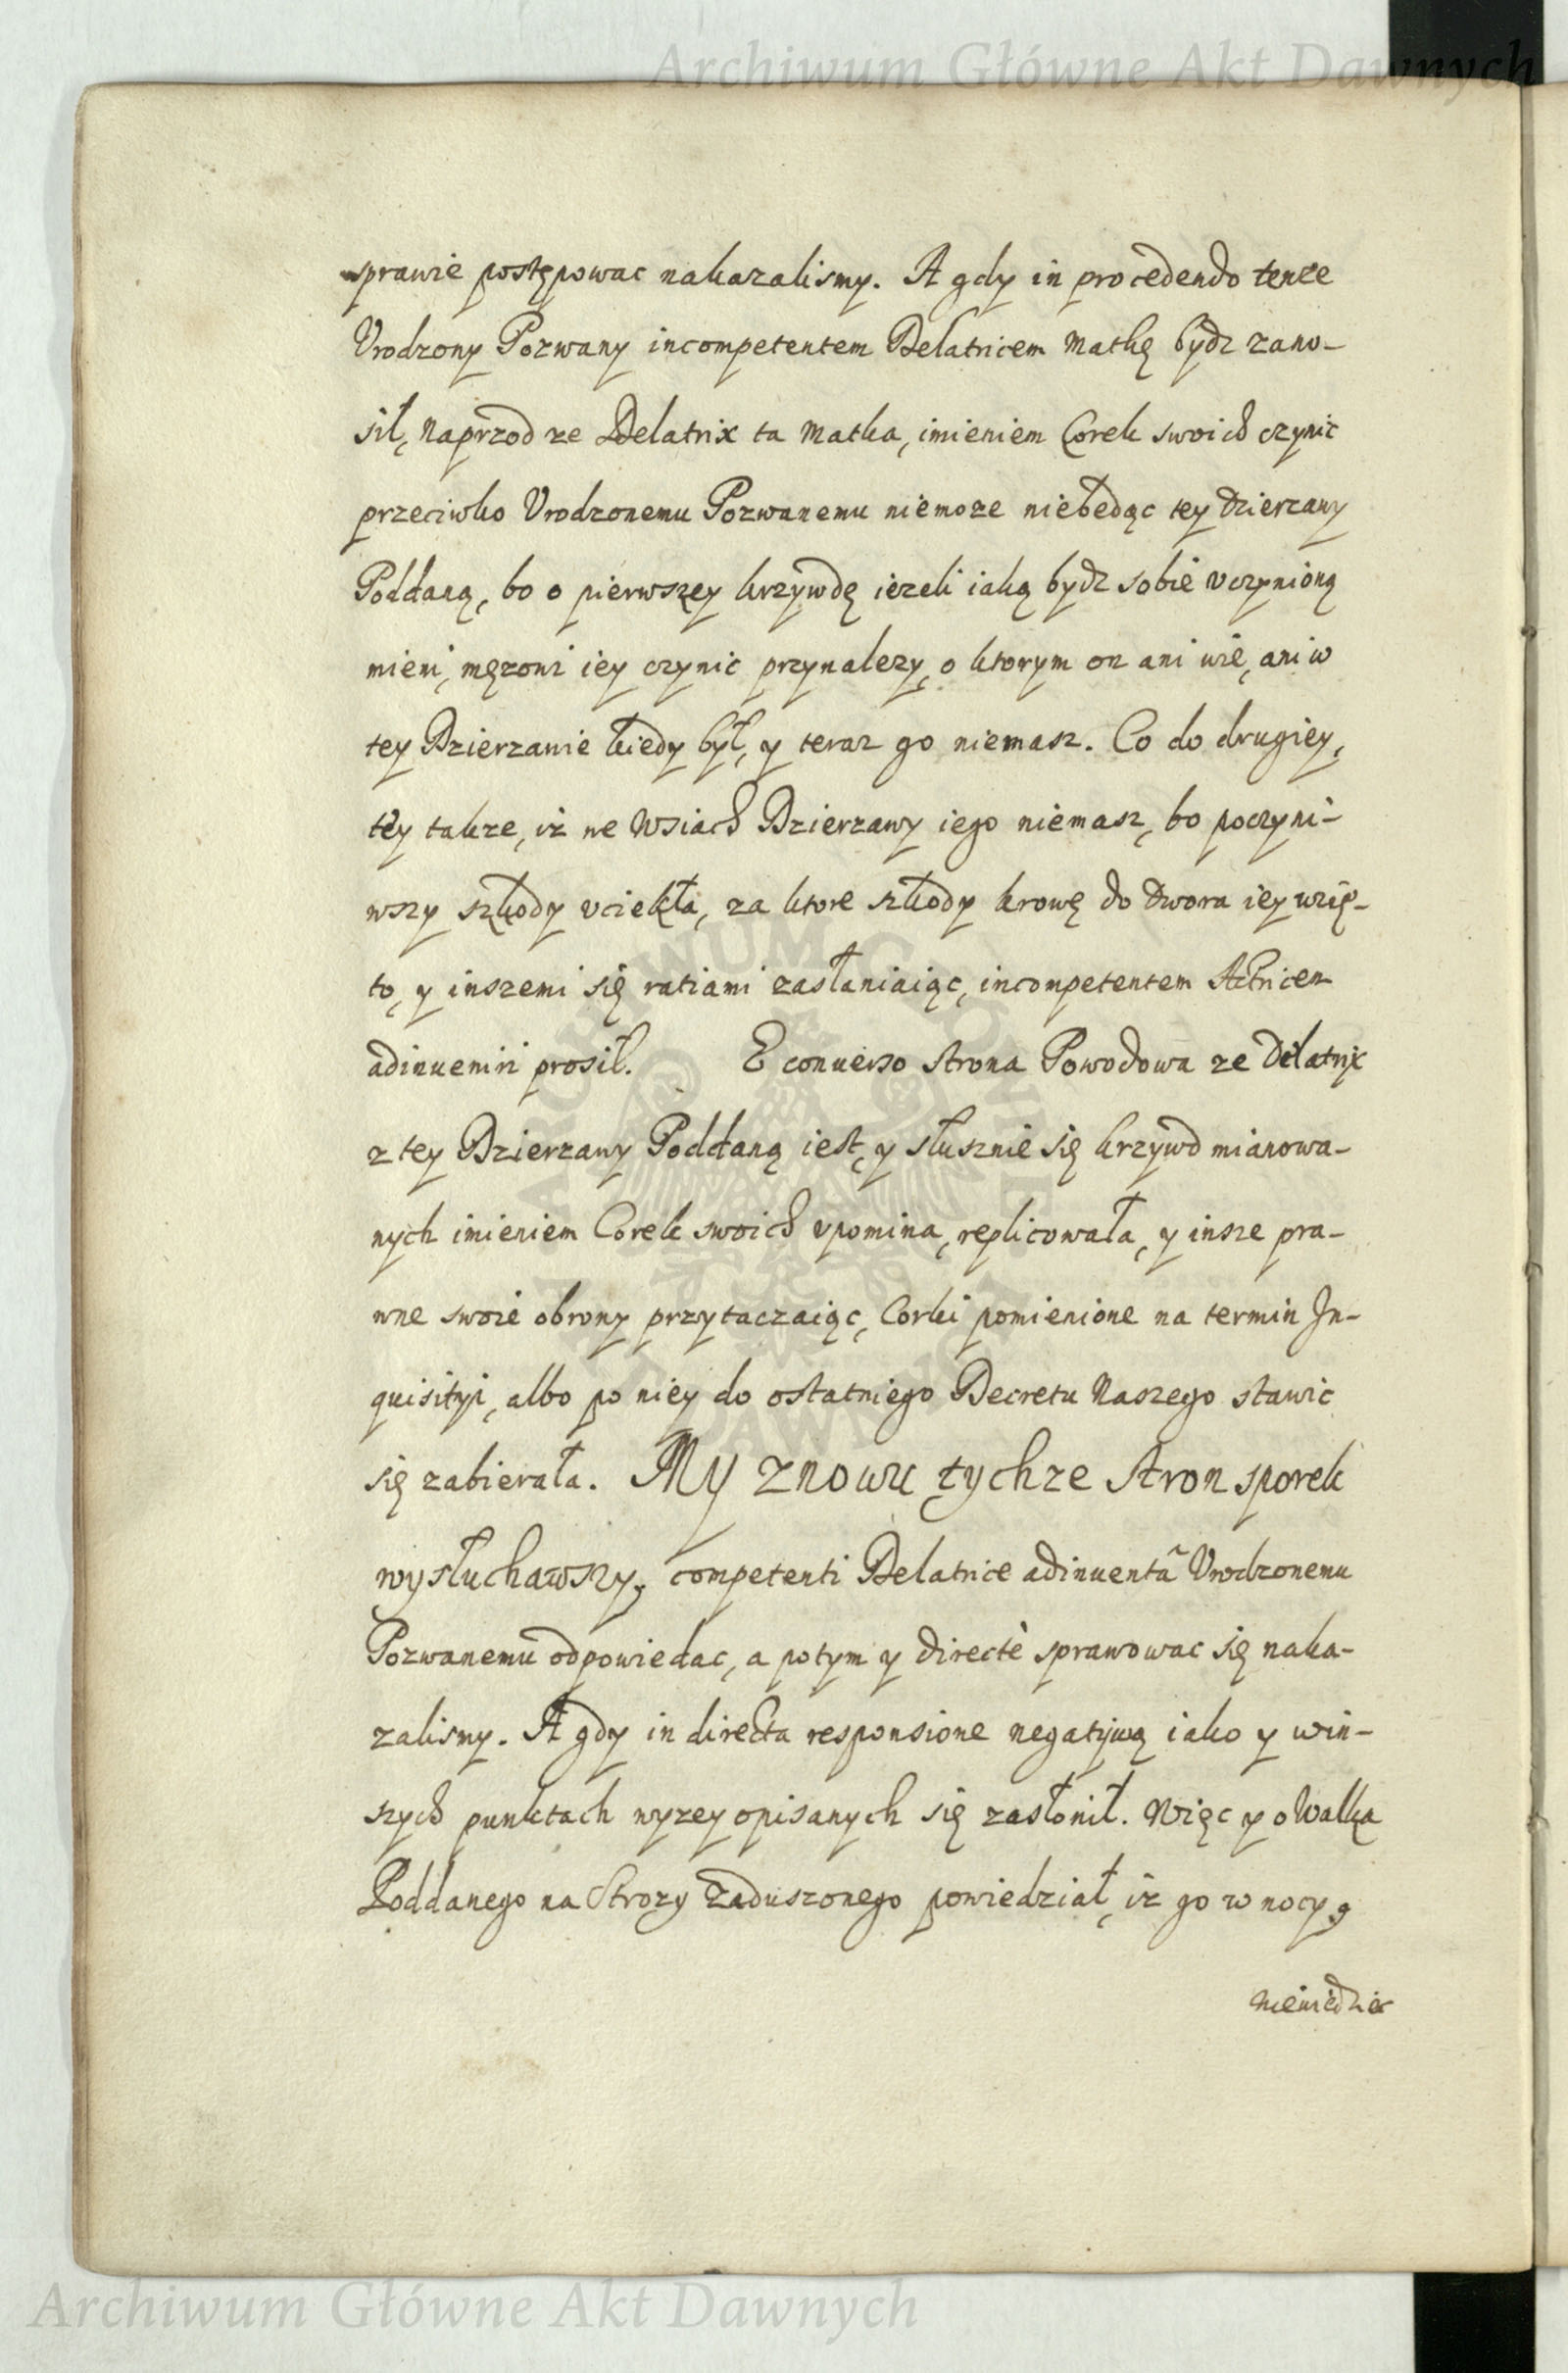 Archiwum Główne Akt Dawnych
sprawie postępowac nakazalismy. A gdy in procedendo tenze
Vrodzony Pozwany incompetentem Delatricem Matkę bydz zano-
sił, Naprzod ze Delatrix ta Matka, imieniem Corek swoich czynic
przeciwko Vrodzonemu Pozwanemu niemoze niebedąc tey Dzierzawy
Poddaną, bo o pierwszey krzywdę iezeli iaką bydz sobie vczynioną
mieni, męzowi iey czynic przynalezy, o ktorym on ani wie, ani w
tey Dzierzawie kiedy był, y teraz go niemasz. Co do drugiey,
tey takze, iz we Wsiach Dzierzawy iego niemasz, bo poczyni-
wszy szkody vciekła, za ktore szkody krowę do Dwora iey wzię-
to, y inszemi się ratiami zasłaniaiąc, incompetentem Actricem
adinueniri prosił. E conuerso strona Powodowa ze Delatrix
z tey Dzierzawy Poddaną iest, y słusznie się krzywd mianowa-
nych imieniem Corek swoich vpomina, replicowała, y insze pra-
wne swoie obrony przytaczaiąc, Corki pomienione na termin In-
quisityi, albo po niey do ostatniego Decretu Naszego stawic
się zabierała. My znowu tychze stron sporek
wysłuchawszy, competenti Delatrice adinuentã Vrodzonemu
Pozwanemu odpowiedac, a potym y directè sprawowac się naka-
zalismy. A gdy in directa responsione negatijwą iako y win-
szych punktach wyzey opisanych się zasłonił. Więc y o Walka
Poddanego na Strozy zaduszonego powiedział, iz go w nocy,
niewiedziec
Archiwum Główne Akt Dawnych